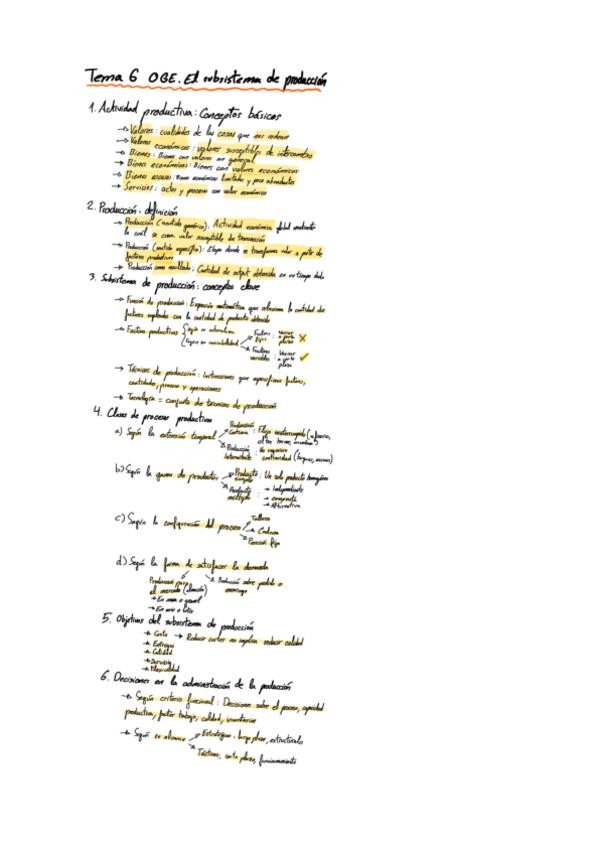 Tema 6 OGE. El subsistema de producción
1. Actividad productiva: Conceptos básicos
→ Valores: cualidades de las cosas que nos rodean
→ Valores económicos: valores susceptibles de intercambio
→ Bienes: Bienes con valores en general
→ Bienes económicos: Bienes con valores económicos
→ Bienes escasos: Bienes económicos limitados y poco abundantes
→ Servicios: actos y procesos con valor económico
2. Producción: definición
→ Producción (sentido genérico): Actividad económica global mediante
la cuál se crean valor susceptible de transacción
→ Producción (sentido específico): Etapa donde se transforma valor a partir de
factores productivos
→ Producción como resultado: Cantidad de output obtenida en un tiempo dado
3. Subsistema de producción: conceptos clave
→ Función de producción: Expresión matemática que relaciona la cantidad de
factores empleados con la cantidad de producto obtenido
→ Factores productivos Según su naturaleza
Según su variabilidad
Factores fijos: Variar a corto plazo X
Factores variables: Variar a corto plazo ✓
→ Técnicas de producción: Instrucciones que especifican factores,
cantidades, proceso y operaciones
→ Tecnología = conjunto de técnicas de producción
4. Clases de procesos productivos
a) Según la extensión temporal
Producción Continua: Flujo ininterrumpido
Producción Intermitente: No requiere continuidad
b) Según la gama de productos
Producto simple: Un solo producto homogéneo
Producto múltiple:
→ Independiente
→ compuesta
→ Alternativa
c) Según la configuración del proceso
Talleres
Cadena
Posición fija
d) Según la forma de satisfacer la demanda
Producción para el mercado (almacén)
→ En masa o granel
→ En serie o lotes
Producción sobre pedido o encargo
5. Objetivos del subsistema de producción
→ Coste → Reducir costes no implica reducir calidad
→ Entregas
→ Calidad
→ Servicio
→ Flexibilidad
6. Decisiones en la administración de la producción
→ Según criterio funcional: Decisiones sobre el proceso, capacidad
productiva, factor trabajo, calidad, inventarios
→ Según su alcance
Estratégicas: largo plazo, estructurales
Tácticas: corto plazo, funcionamiento